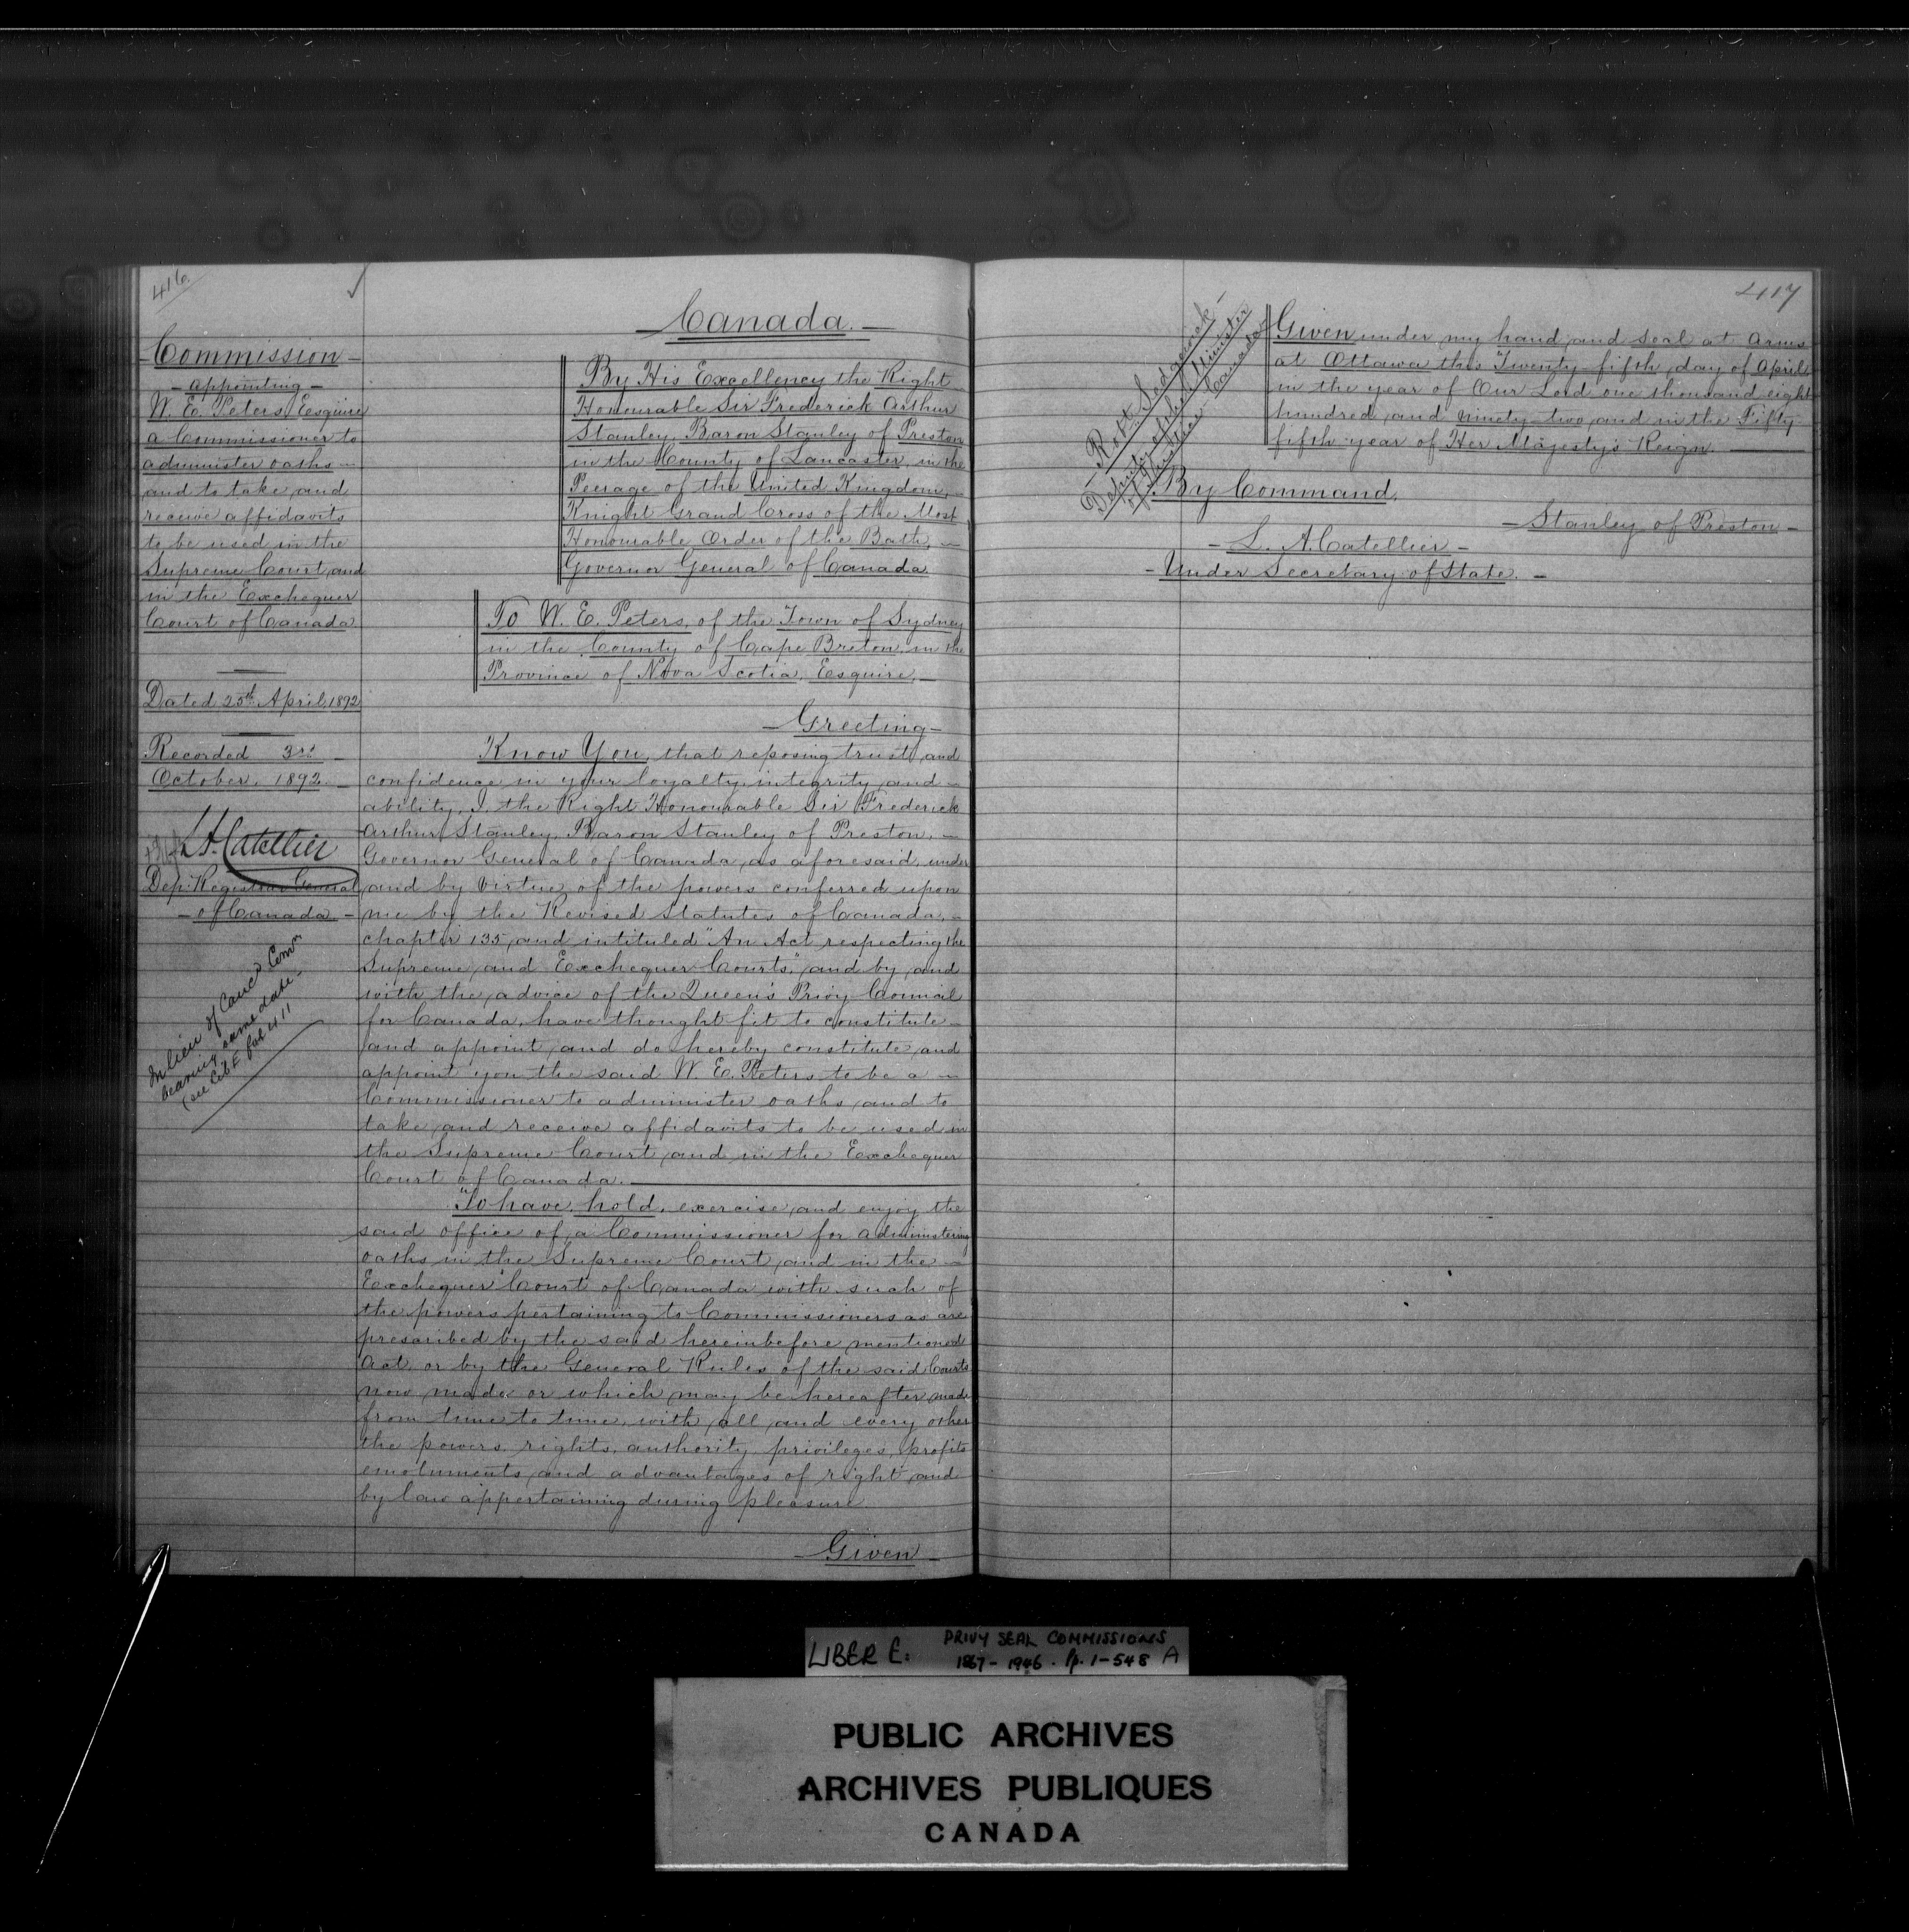 416
Commission
- appointing -
W. E. Peters, Esquire
a Commissioner to
administer oaths
and to take and
receive affidavits
to be used in the
Supreme Court and
in the Exchequer
Court of Canada
Dated 25th April, 1892
Recorded 3rd
October, 1892
L.A. Catellier
Dep. Registrar General
- of Canada -
In lieu of Cancd Comn
bearing same date -
(see Lib E fol 411
- Canada. -
By His Excellency the Right
Honourable Sir Frederick Arthur
Stanley, Baron Stanley of Preston
in the County of Lancaster, in the
Peerage of the United Kingdom,
Knight Grand Cross of the Most
Honourable Order of the Bath,
Governor General of Canada
To W. E. Peters, of the Town of Sydney
in the County of Cape Breton, in the
Province of Nova Scotia, Esquire,
- Greeting -
Know You, that reposing trust and
confidence in your loyalty, integrity and
ability, I, the Right Honourable Sir Frederick
Arthur Stanley, Baron Stanley of Preston,
Governor General of Canada, as aforesaid, under
and by virtue of the powers conferred upon
me by the Revised Statutes of Canada,
chapter 135, and intituled "An Act respecting the
Supreme and Exchequer Courts," and by and
with the advice of the Queen's Privy Council
for Canada, have thought fit to constitute
and appoint, and do hereby constitute and
appoint you the said W. E. Peters to be a
Commissioner to administer oaths and to
take and receive affidavits to be used in
the Supreme Court and in the Exchequer
Court of Canada.
To have, hold, exercise and enjoy the
said office of a Commissioner for administering
oaths in the Supreme Court and in the
Exchequer Court of Canada with such of
the powers pertaining to Commissioners as are
prescribed by the said hereinbefore mentioned
Act, or by the General Rules of the said Courts
now made or which may be hereafter made
from time to time, with all and every other
the powers, rights, authority, privileges, profits
emoluments and advantages of right and
by law appertaining during pleasure
- Given -
417
- Robt. Sedgewick -
Deputy of the Minister
of Justice Canada
Given under my hand and seal at Arms
at Ottawa this Twenty-fifth day of April
in the year of Our Lord one thousand eight
hundred and ninety-two and in the Fifty-
fifth year of Her Majesty's Reign.
By Command,
- Stanley of Preston -
- L. A. Catellier -
- Under Secretary of State. -
LIBER E: PRIVY SEAL COMMISSIONS
1867-1946. Pp. 1-548 A
PUBLIC ARCHIVES
ARCHIVES PUBLIQUES
CANADA